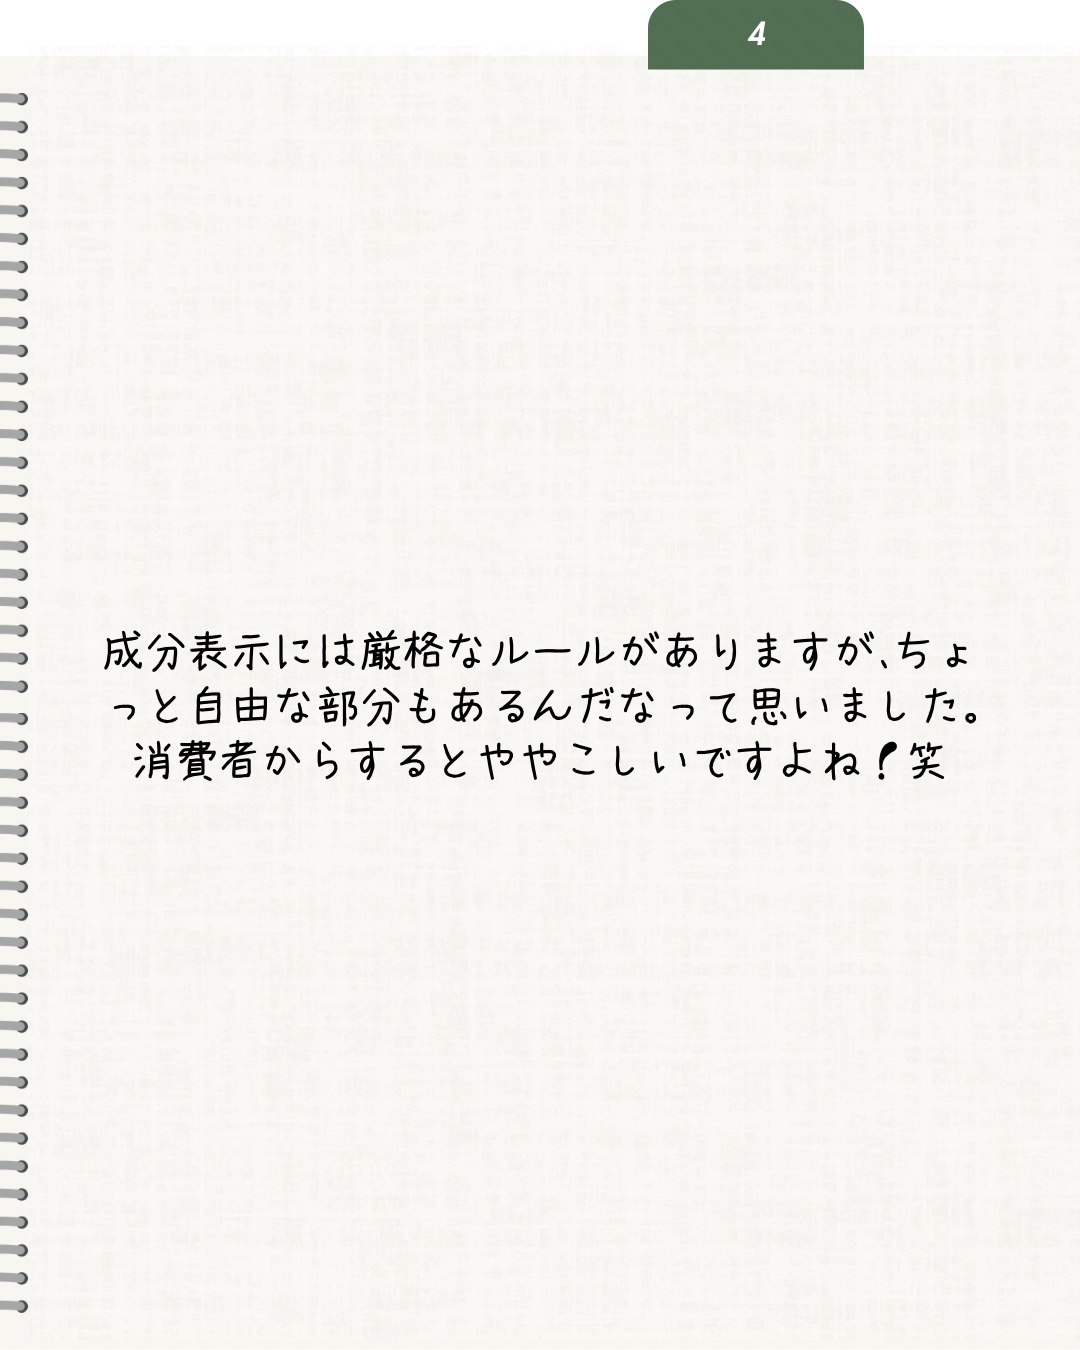 4
成分表示には厳格なルールがありますが、ちょ
っと自由な部分もあるんだなって思いました。
消費者からするとややこしいですよね！笑